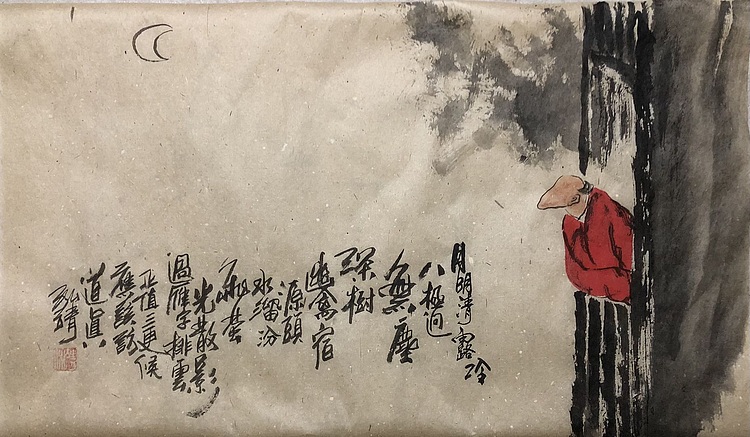 月明清露冷
八極迥
無塵
深樹
幽禽宿
源頭
水溜汾
飛螢
光散影
過雁字排雲
正值三更候
應該訪
道真